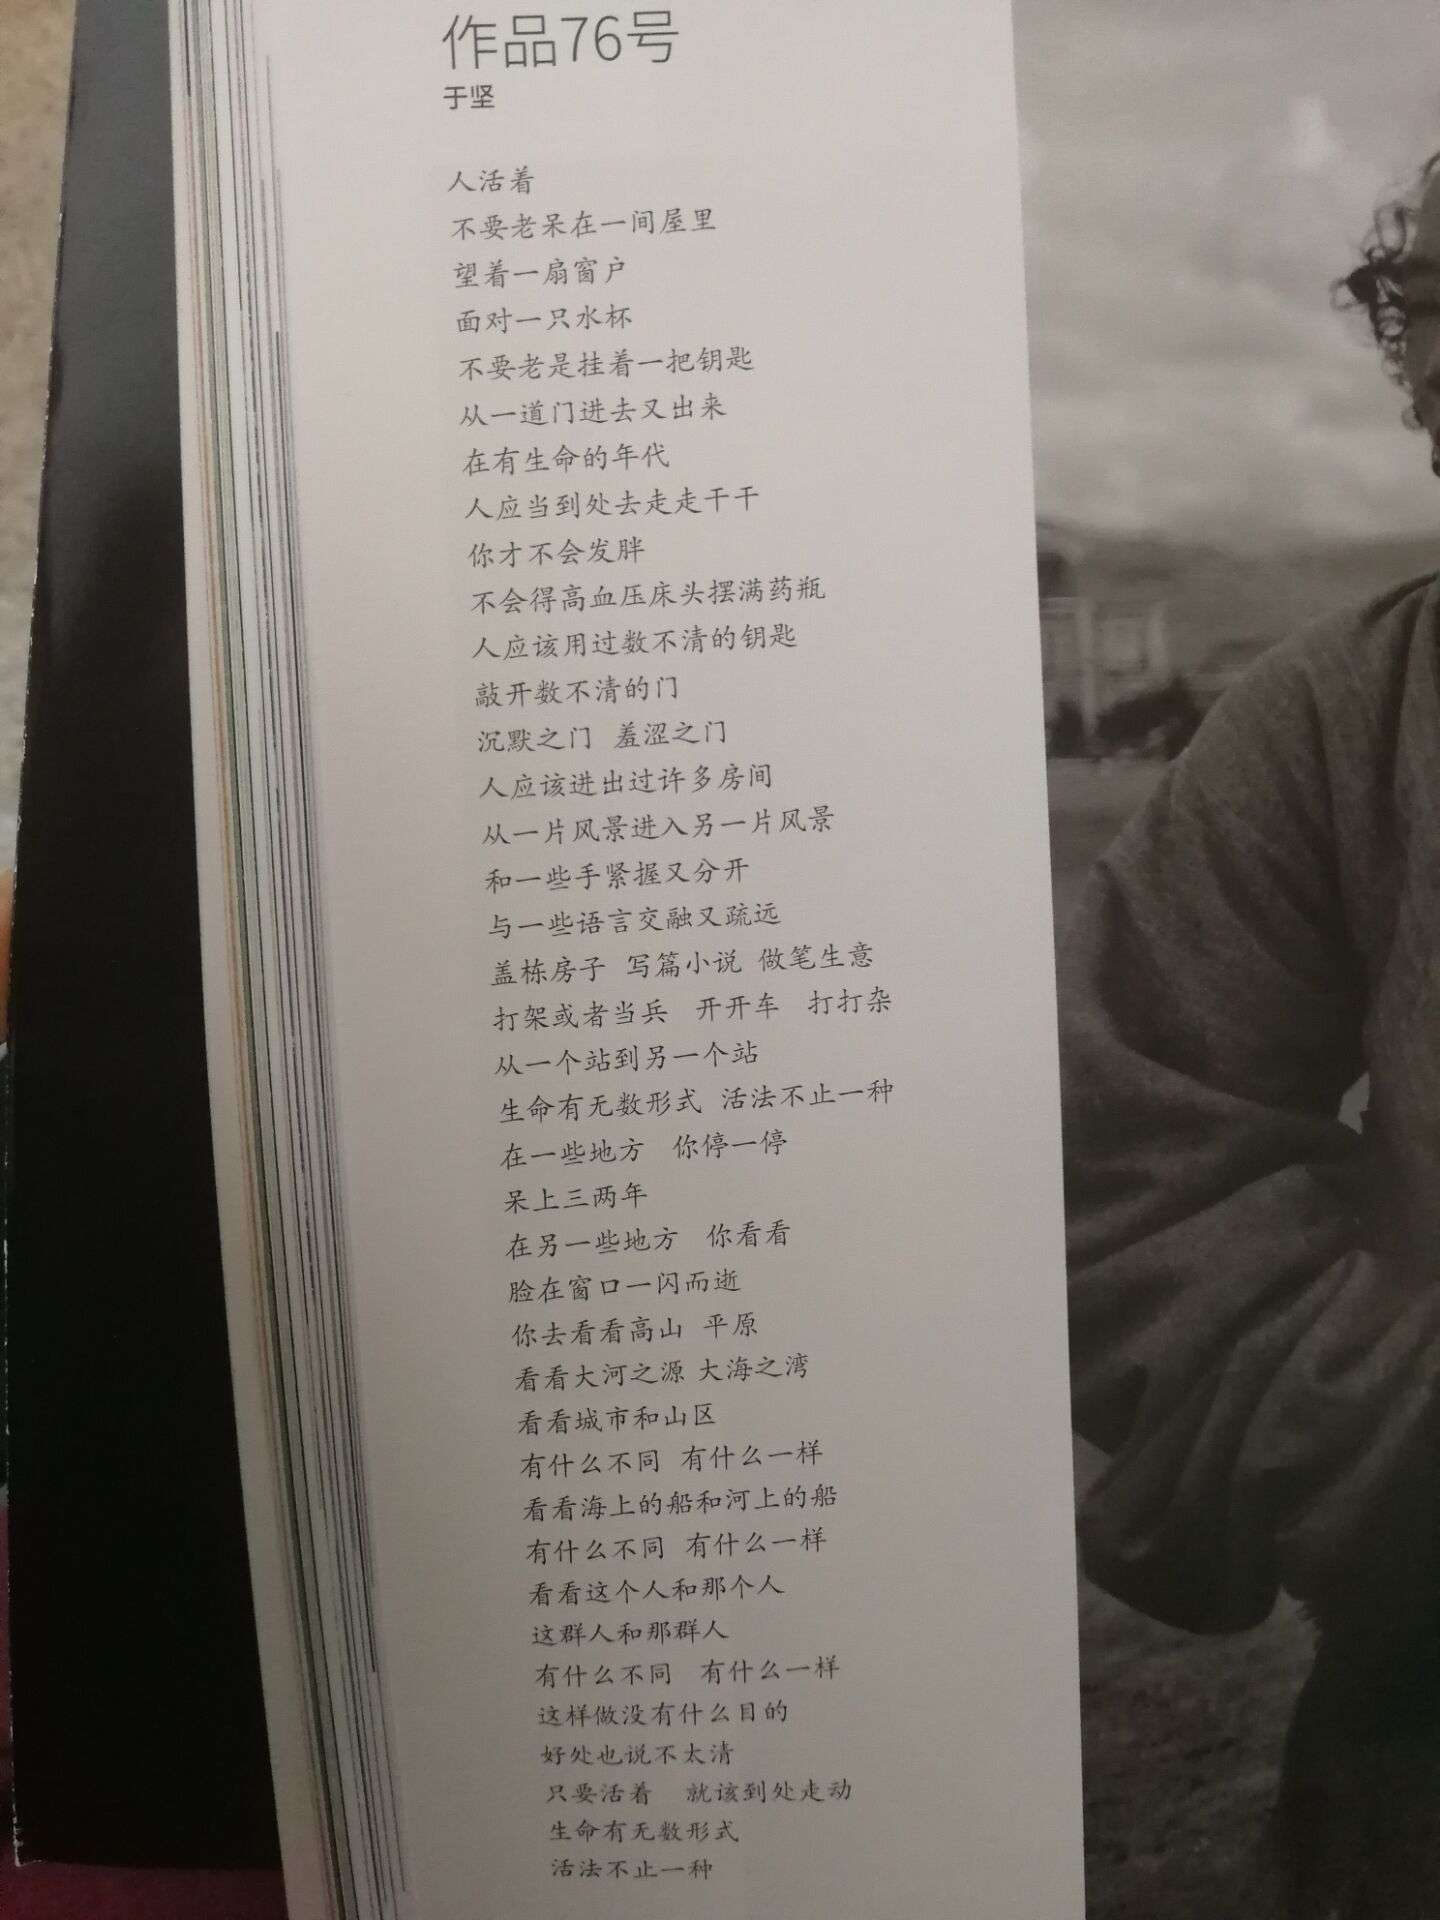 作品76号
于坚
人活着
不要老呆在一间屋里
望着一扇窗户
面对一只水杯
不要老是挂着一把钥匙
从一道门进去又出来
在有生命的年代
人应当到处去走走干干
你才不会发胖
不会得高血压床头摆满药瓶
人应该用过数不清的钥匙
敲开数不清的门
沉默之门 羞涩之门
人应该进出过许多房间
从一片风景进入另一片风景
和一些手紧握又分开
与一些语言交融又疏远
盖栋房子 写篇小说 做笔生意
打架或者当兵 开开车 打打杂
从一个站到另一个站
生命有无数形式 活法不止一种
在一些地方 你停一停
呆上三两年
在另一些地方 你看看
脸在窗口一闪而逝
你去看看高山 平原
看看大河之源 大海之湾
看看城市和山区
有什么不同 有什么一样
看看海上的船和河上的船
有什么不同 有什么一样
看看这个人和那个人
这群人和那群人
有什么不同 有什么一样
这样做没有什么目的
好处也说不太清
只要活着 就该到处走动
生命有无数形式
活法不止一种